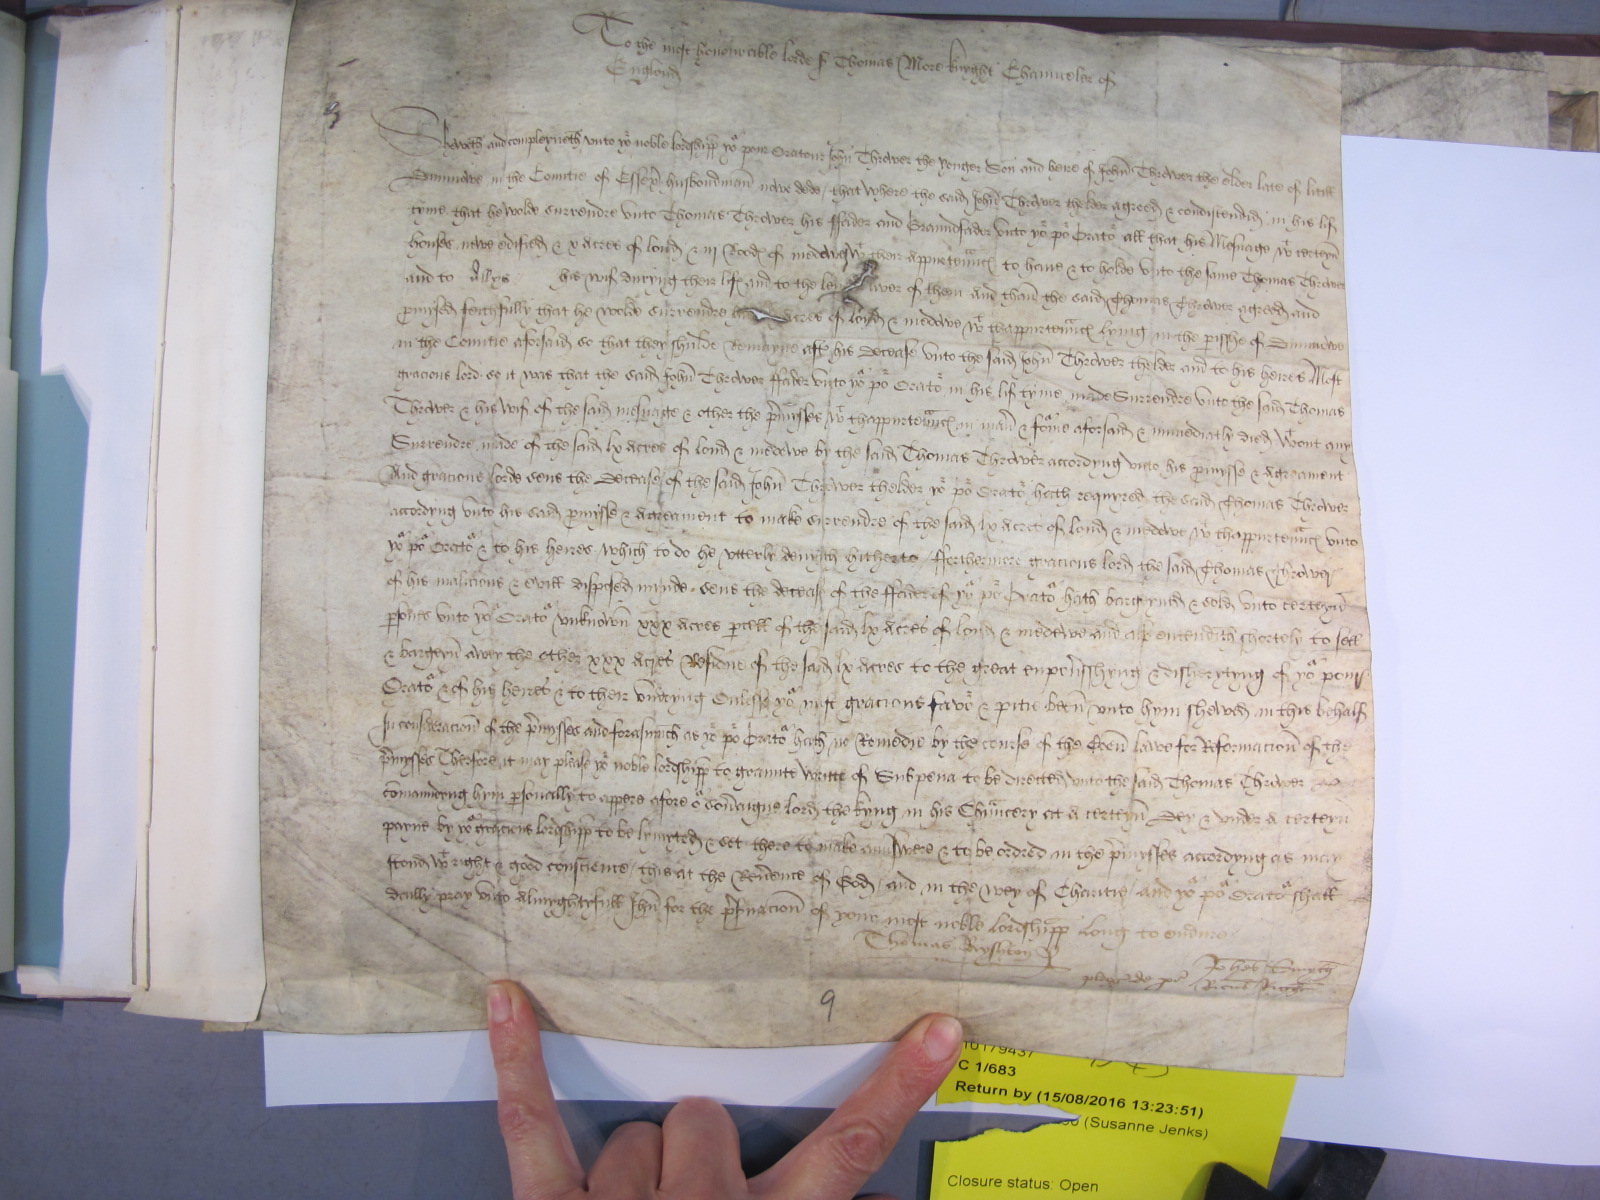 To the most honourable lorde sr Thomas More knyght Chaunceler of
Englond
Sheweth and compleyneth unto yor noble lordshipp yor pour Oratour John Thrower the yonger Son and heire of John Thrower the elder late of litill
Dunmowe in the Countie of Essex husbondman nowe dede / that where the said John Thrower thelder agreed & condiscendid in his lif
tyme that he wolde surrendre unto Thomas Thrower his ffader and Graundfader unto yor por Orator all that his Mesuage wt certeyn
houses nowe edified & x acres of lond & iij Rodes of medowe wt their appurtenaunces to have & to holde unto the same Thomas Thrower
and to Alys his wif duryng their lifes and to the lenger lyver of them and than the said Thomas Thrower agreed and
promysed feithfully that he wolde surrendre acres of lond & medowe wt thappurtenaunces lying in the parisshe of Dunmowe
in the Countie aforsaid so that they shulde Remayne aftr his decease unto the said John Thrower thelder and to his heires Most
gracious lord so it was that the said John Thrower ffader unto yor por Orator in his lif tyme made Surrendre unto the said Thomas
Thrower & his wif of the said mesuage & other the premysses wt thappurtenaunces in maner & fourme aforsaid & immediatly died wtout any
Surrendre made of the said lx acres of lond & medowe by the said Thomas Thrower accordyng unto his promysse & Agreament
And gracious lorde sens the Decease of the said John Thrower thelder yor por Orator hath requyred the said Thomas Thrower
accordyng unto his said promysse & agreament to make surrendre of the said lx acres of lond & medowe wt thappurtenaunces unto
yor por Orator & to his heires which to do he utterly denyeth hitherto / ffurthermore gracious lord the said Thomas Thrower
of his malicious & evill disposed mynde sens the decease of the ffader of yor por Orator hath bargeyned & sold unto certeyn
persones unto yor Orator unknowen xxx acres parcell of the said lx acres of lond & medowe and also entendith shortely to sell
& bargeyn awey the other xxx acres Residue of the said lx acres to the great enpoverisshyng & disherytyng of yor pour
Orator & of his heires & to their undoyng Onlesse yor most gracious favor & pitie been unto hym shewed in this behalf
In consideracion of the premysses and forasmuch as yor por Orator hath no Remedie by the course of the Comen lawe for Reformacion of the
premysses Therfore it may please yor noble lordshipp to graunte writte of Subpena to be directed unto the said Thomas Thrower
comaundyng hym personally to appere afore or soveraigne lord the kyng in his Chauncery at a certeyn Dey & under a certeyn
payne by yor gracious lordshipp to be lymyted & set there to make aunswere & to be ordred in the premysses accordyng as may
stond wt right & good conscience / this at the Reverence of God / and in the wey of Charitie / and yor por Orator shall
dailly pray unto Almyghtyfull Jhu for the preservacion of your most noble lordshipp long to endure
Thomas Ryshton
plegg de pros Johes Smyth
9
10179437
C 1/683
Return by (15/08/2016 13:23:51)
(Susanne Jenks)
Closure status: Open